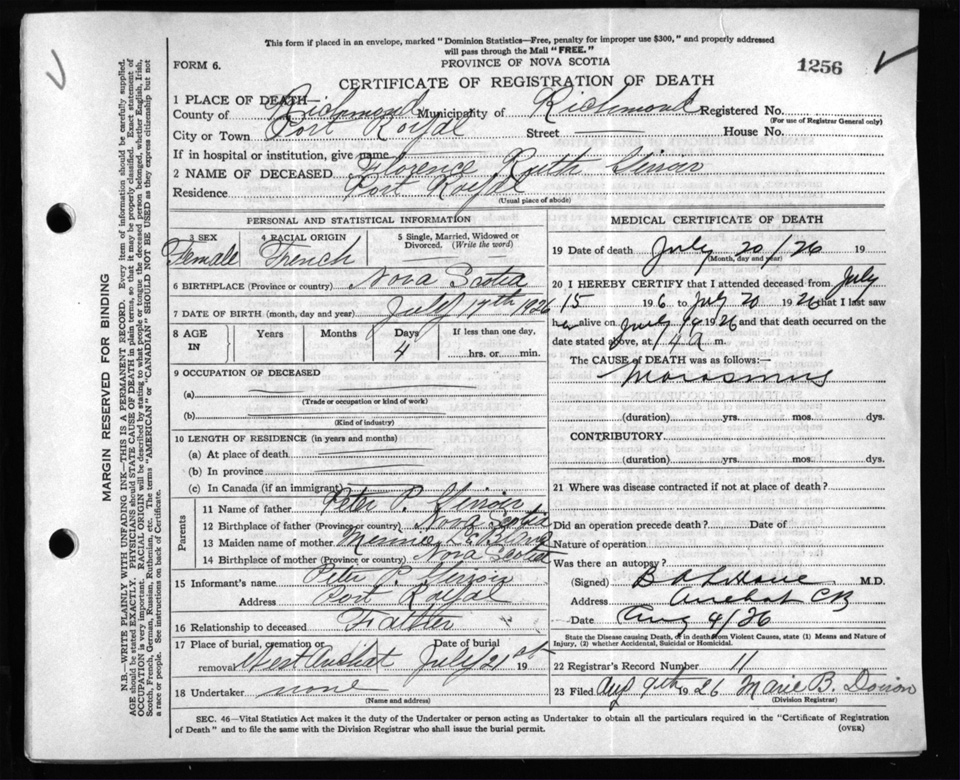 This form if placed in an envelope, marked "Dominion Statistics—Free, penalty for improper use $300," and properly addressed
will pass through the Mail "FREE."
FORM 6.
PROVINCE OF NOVA SCOTIA
1256
CERTIFICATE OF REGISTRATION OF DEATH
1 PLACE OF DEATH
County of Richmond Municipality of Richmond Registered No.
(For use of Registrar General only)
City or Town Port Royal Street House No.
If in hospital or institution, give name
2 NAME OF DECEASED Florence Ruth
Residence Port Royal
(Usual place of abode)
PERSONAL AND STATISTICAL INFORMATION
3 SEX
Female
4 RACIAL ORIGIN
French
5 Single, Married, Widowed or Divorced. (Write the word)
6 BIRTHPLACE (Province or country) Nova Scotia
7 DATE OF BIRTH (month, day and year) July 17th 1926
8 AGE IN Years Months Days If less than one day,
4 hrs. or min.
9 OCCUPATION OF DECEASED
(a)
(Trade or occupation or kind of work)
(b)
(Kind of industry)
10 LENGTH OF RESIDENCE (in years and months)
(a) At place of death
(b) In province
(c) In Canada (if an immigrant)
Parents
11 Name of father Peter P.
12 Birthplace of father (Province or country) Nova Scotia
13 Maiden name of mother
14 Birthplace of mother (Province or country) Nova Scotia
15 Informant's name Peter P.
Address Port Royal
16 Relationship to deceased Father
17 Place of burial, cremation or removal West Arichat Date of burial July 21 19 26
18 Undertaker none
(Name and address)
MEDICAL CERTIFICATE OF DEATH
19 Date of death July 20/26 19
(Month, day and year)
20 I HEREBY CERTIFY that I attended deceased from July
15 19 6 to July 20 1926 that I last saw
her alive on July 1926 and that death occurred on the
date stated above, at m.
The CAUSE of DEATH was as follows:—
Marasmus
(duration) yrs. mos. dys.
CONTRIBUTORY
(duration) yrs. mos. dys.
21 Where was disease contracted if not at place of death?
Did an operation precede death? Date of
Nature of operation
Was there an autopsy?
(Signed) M.D.
Address Arichat CB
Date Aug 4/26
State the Disease causing Death, or in deaths from Violent Causes, state (1) Means and Nature of
Injury, (2) whether Accidental, Suicidal or Homicidal.
22 Registrar's Record Number 11
23 Filed Aug 9th 1926 Marie B. Doiron
(Division Registrar)
SEC. 46—Vital Statistics Act makes it the duty of the Undertaker or person acting as Undertaker to obtain all the particulars required in the "Certificate of Registration
of Death" and to file the same with the Division Registrar who shall issue the burial permit.
(OVER)
MARGIN RESERVED FOR BINDING
N.B.—WRITE PLAINLY WITH UNFADING INK—THIS IS A PERMANENT RECORD. Every item of information should be carefully supplied.
AGE should be stated EXACTLY. PHYSICIANS should STATE CAUSE OF DEATH in plain terms, so that it may be properly classified. Exact statement of
OCCUPATION is very important. RACIAL ORIGIN will be described by stating to what people or tongue the deceased person belonged, whether English, Irish,
Scotch, French, German, Russian, Ruthenian, etc. The terms "AMERICAN" or "CANADIAN" SHOULD NOT BE USED as they express citizenship but not
a race or people. See instructions on back of Certificate.